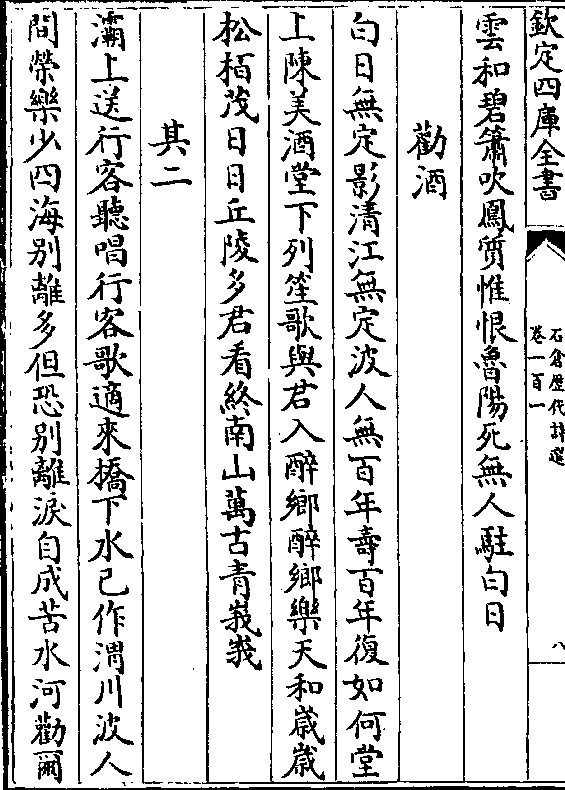 欽定四庫全書
石倉歷代詩選
卷一百一
八
雲和碧簫吹鳳質惟恨魯陽死無人駐白日
勸酒
白日無定影清江無定波人無百年壽百年復如何堂
上陳美酒堂下列笙歌與君入醉鄉醉鄉樂天和歲歲
松栢茂日日丘陵多君看終南山萬古青峩峩
其二
灞上送行客聽唱行客歌適來橋下水已作渭川波人
間榮樂少四海别離多但恐别離淚自成苦水河勸爾